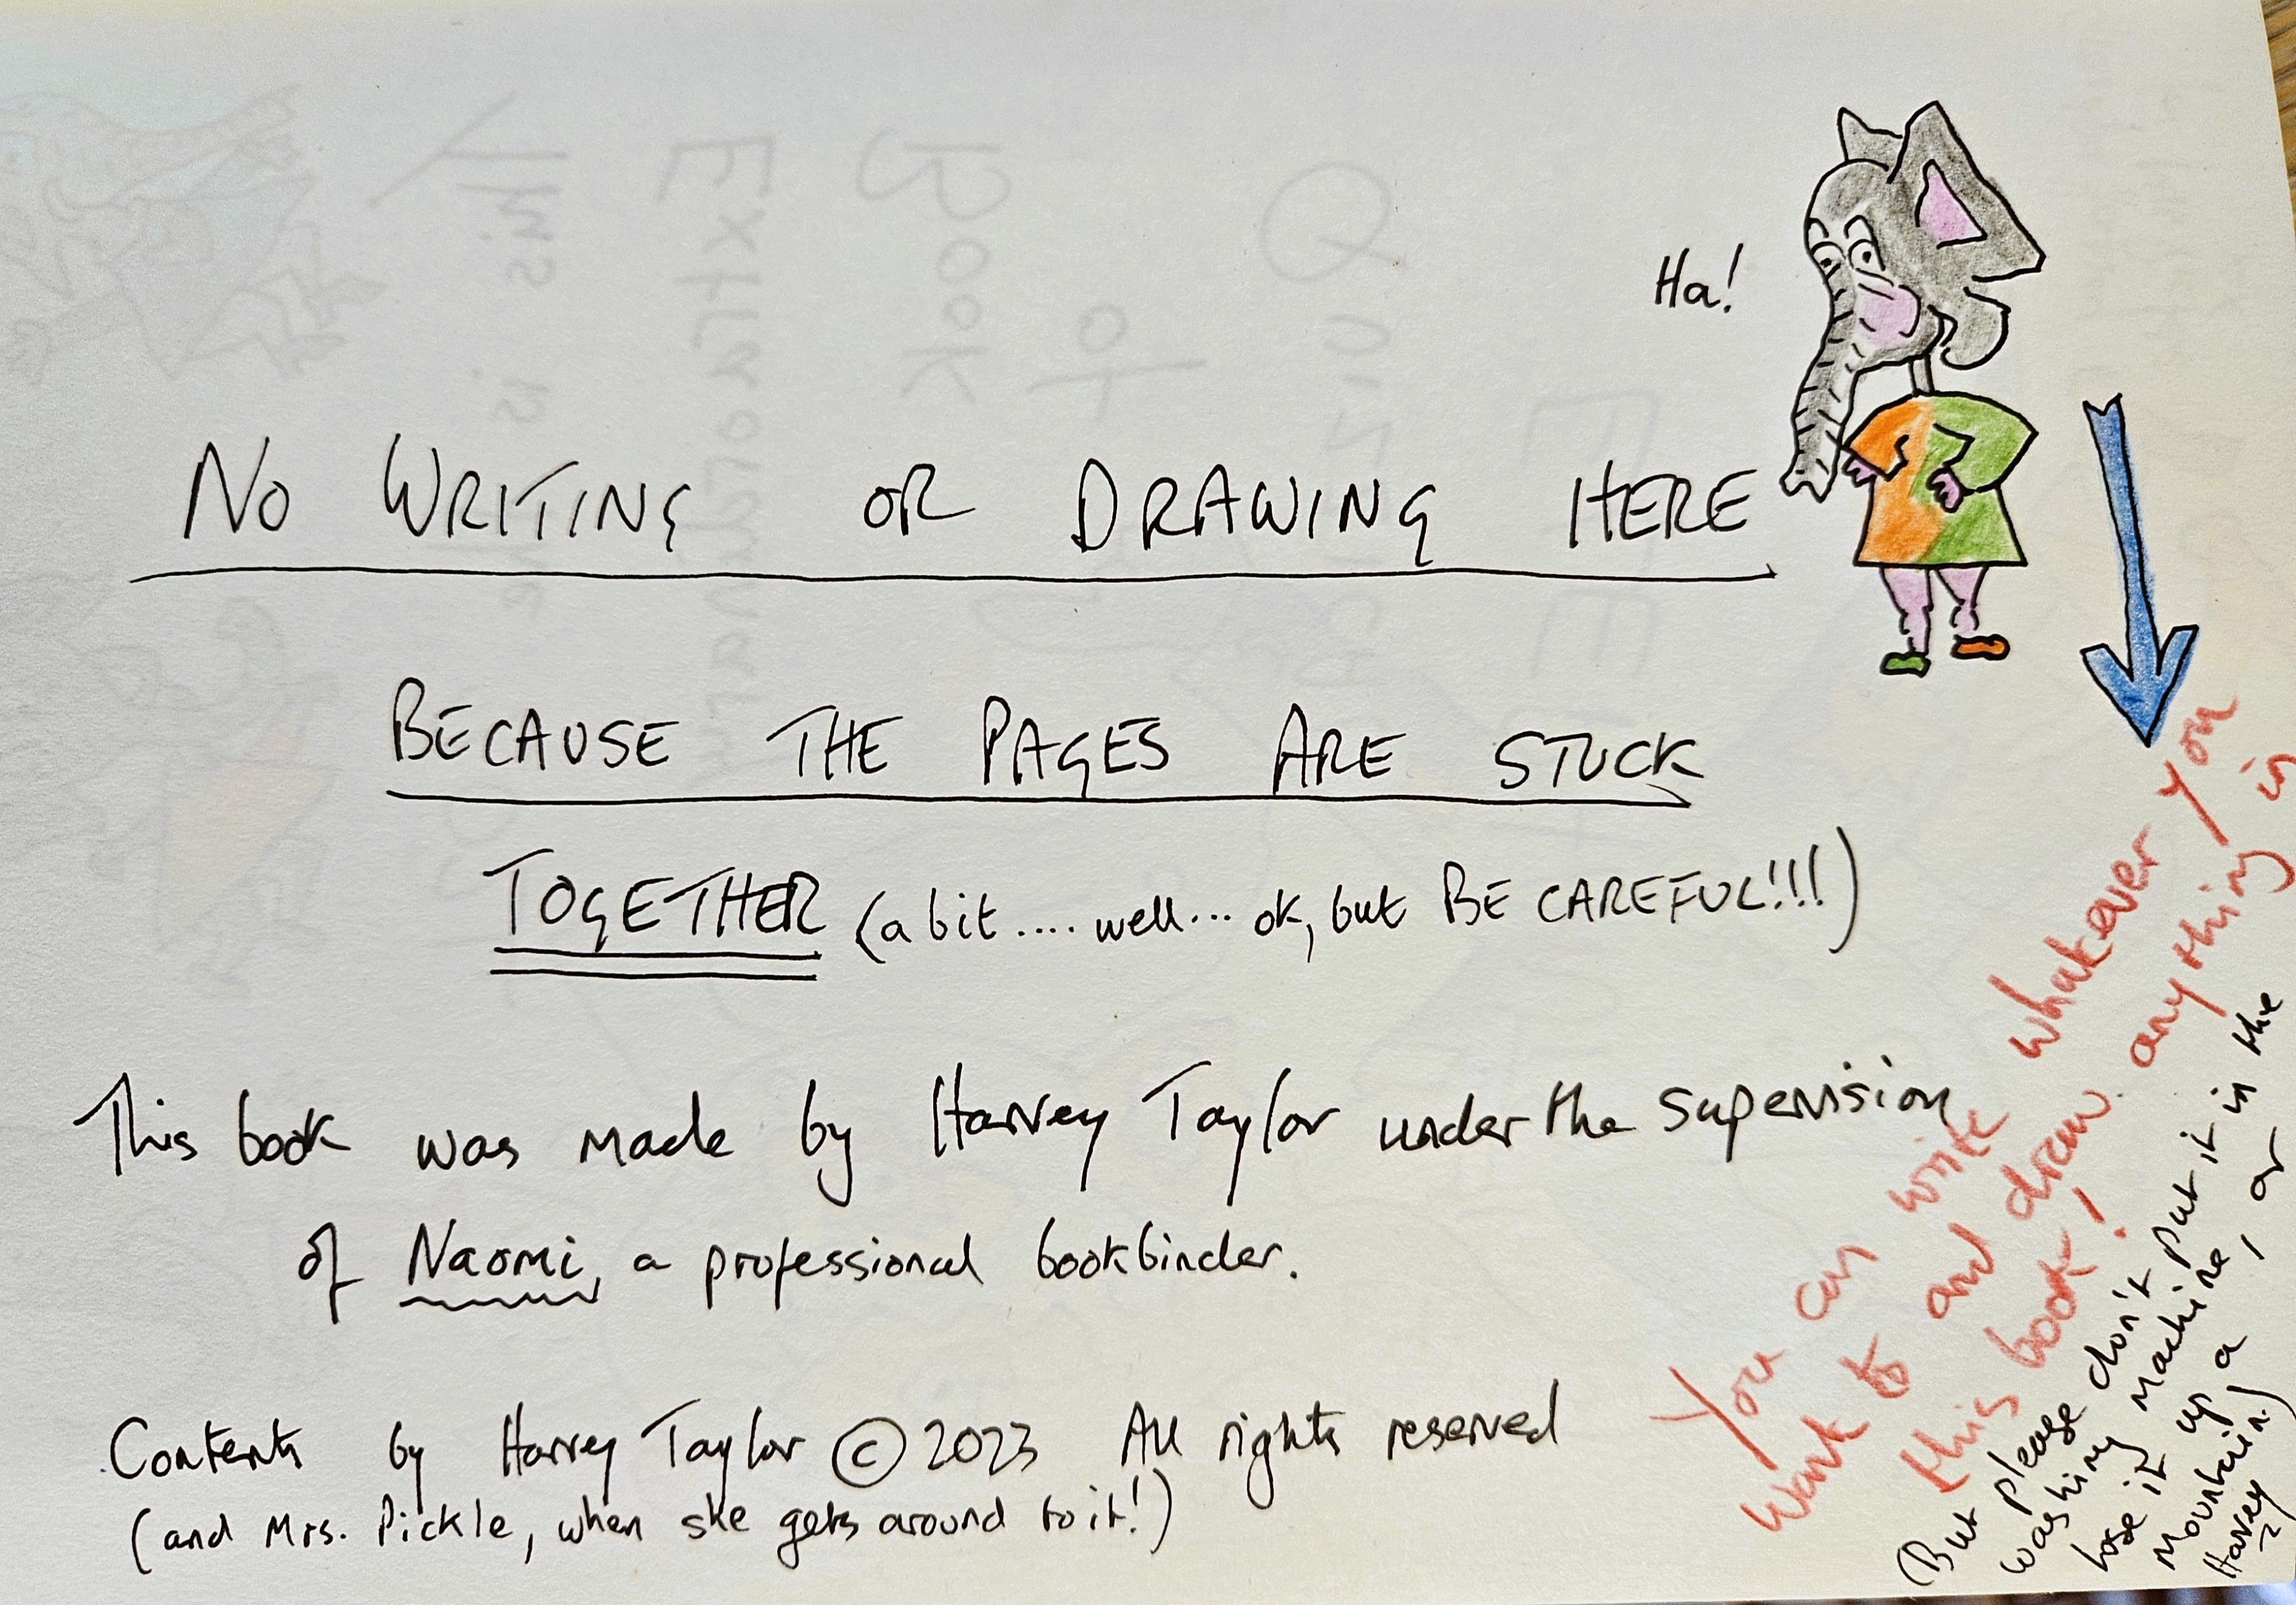 Ha!
NO WRITING OR DRAWING HERE
BECAUSE THE PAGES ARE STUCK
TOGETHER (a bit.... well... ok, but BE CAREFUL!!!)
This book was made by Harvey Taylor under the supervision
of Naomi, a professional bookbinder.
Contents by Harvey Taylor © 2023 All rights reserved
(and Mrs. Pickle, when she gets around to it!)
You can write whatever you
want to and draw anything in
this book!
(But please don't put it in the
washing machine, or
lose it up a
mountain!)
Harvey
This is
Extraordinary
Book
of
Quizzes